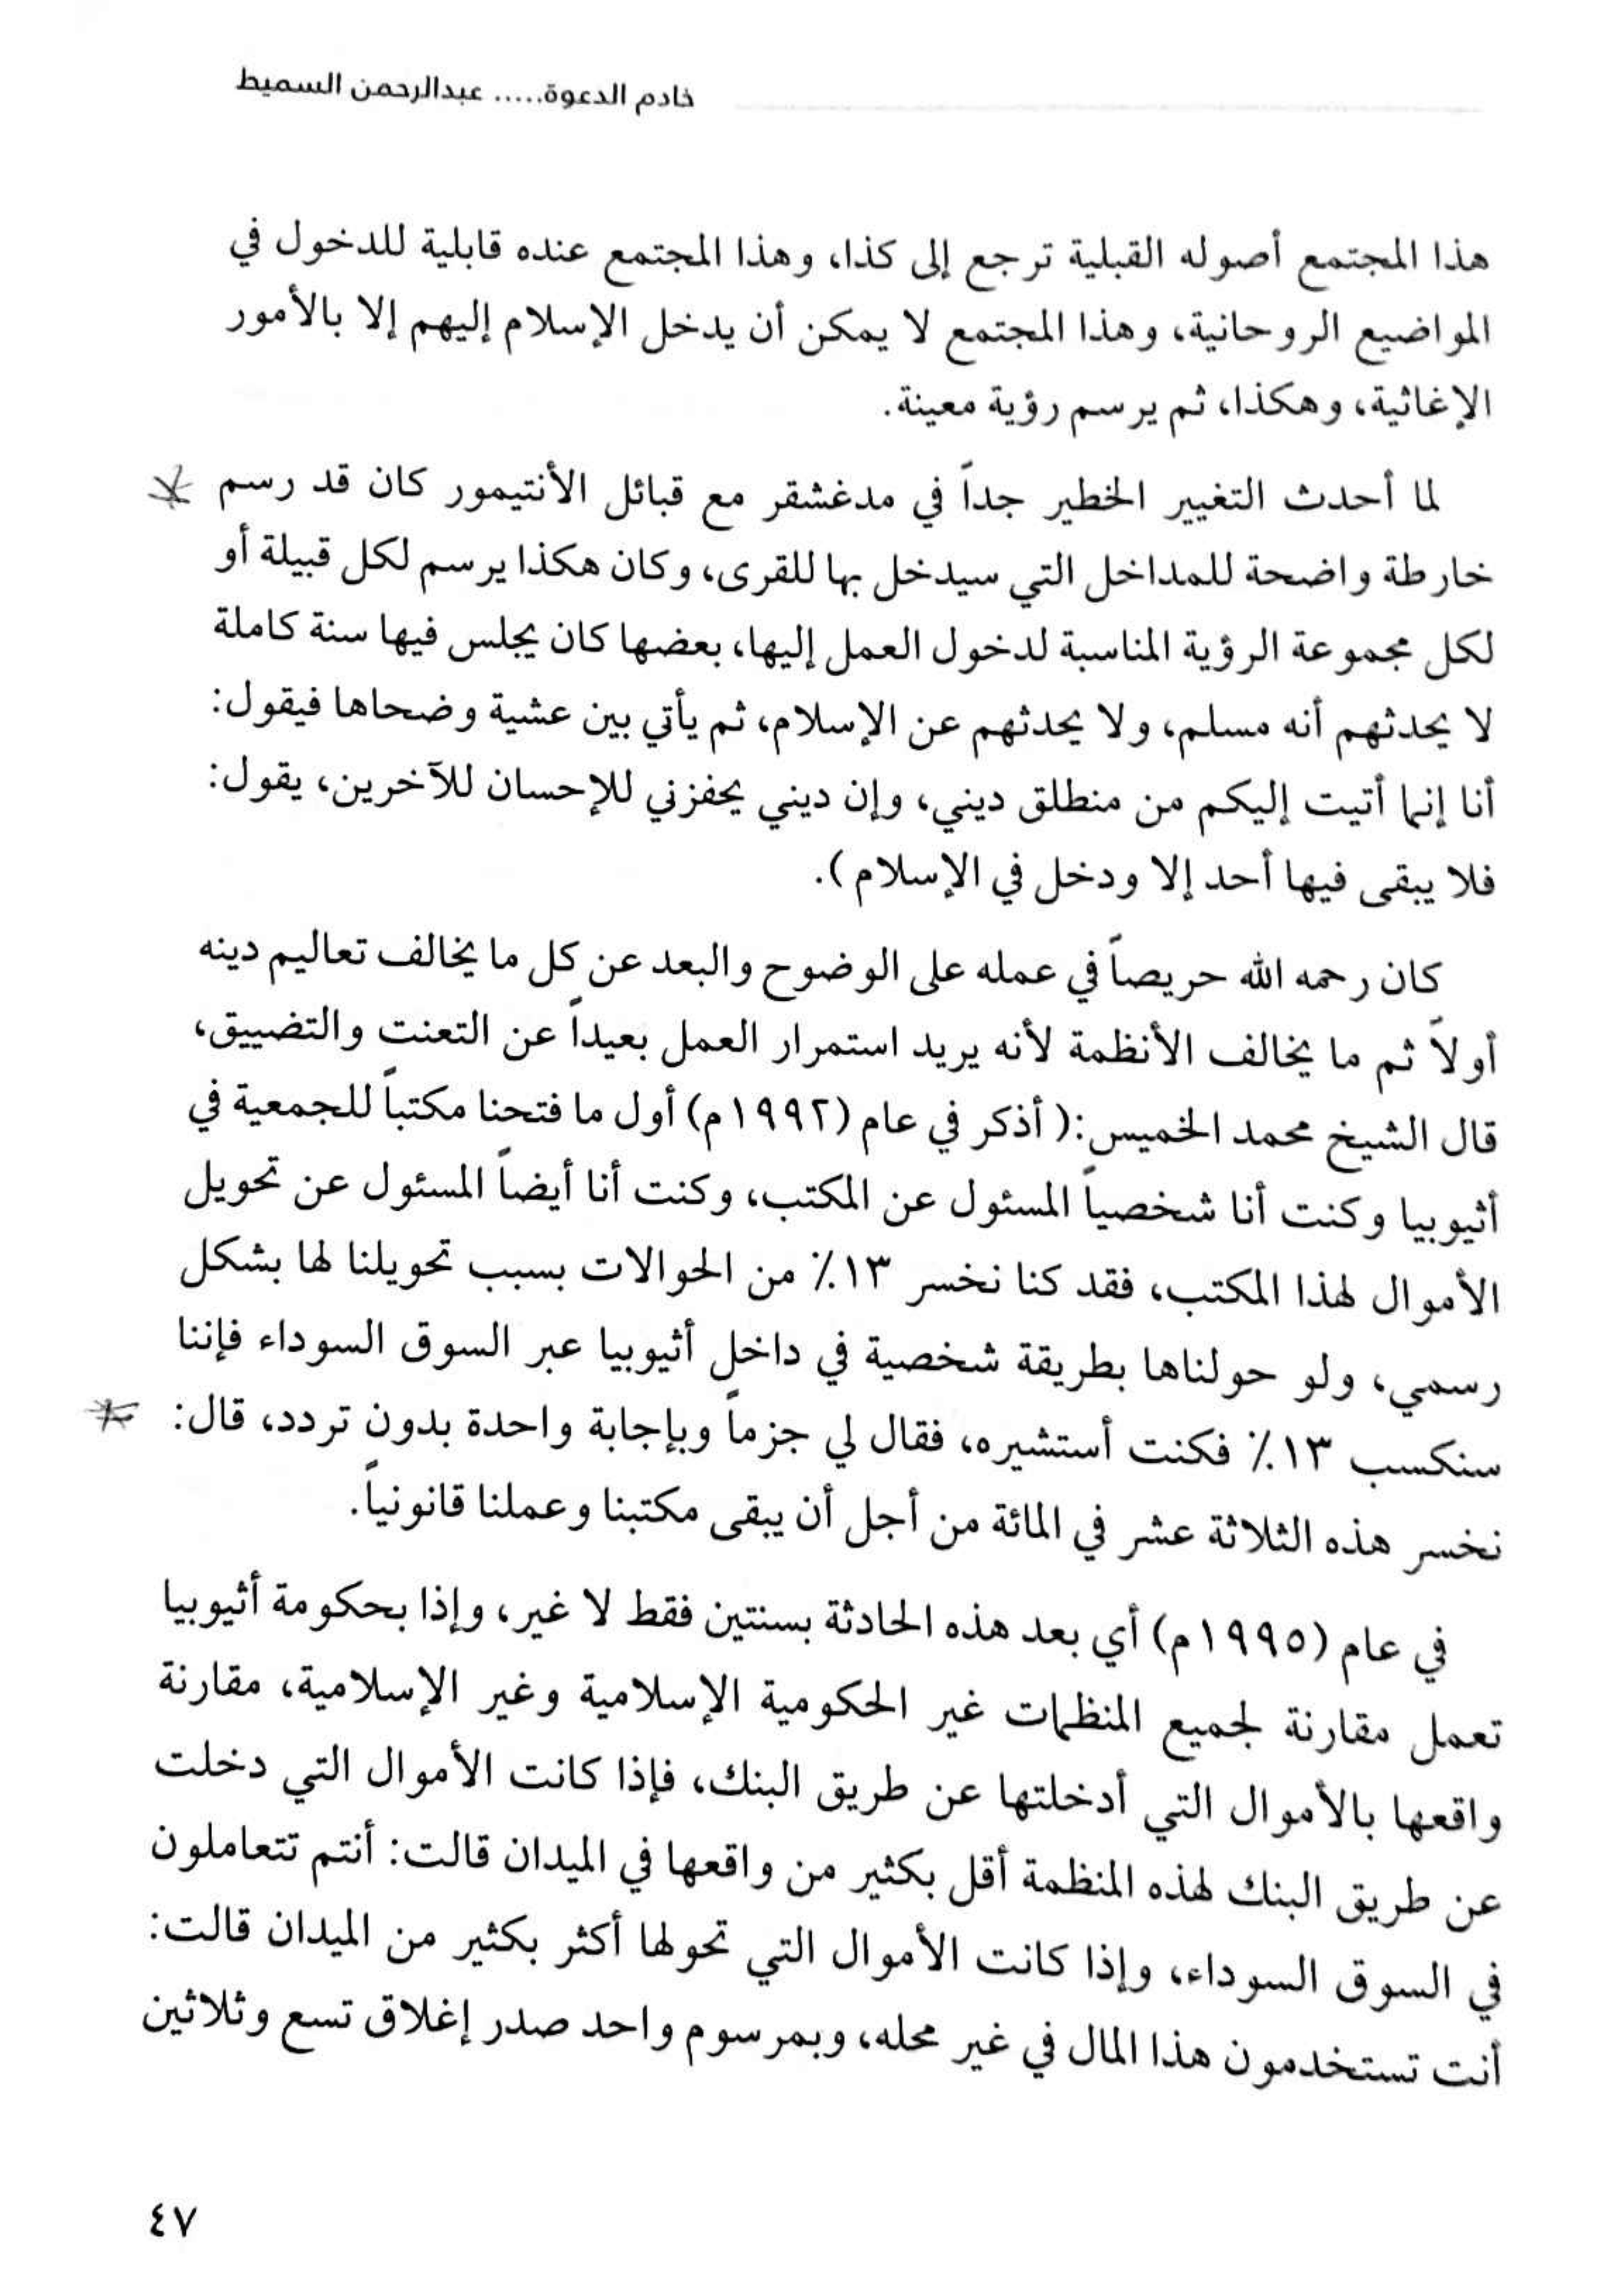 خادم الدعوة..... عبدالرحمن السميط
هذا المجتمع أصوله القبلية ترجع إلى كذا، وهذا المجتمع عنده قابلية للدخول في
المواضيع الروحانية، وهذا المجتمع لا يمكن أن يدخل الإسلام إليهم إلا بالأمور
الإغاثية، وهكذا، ثم يرسم رؤية معينة.
لما أحدث التغيير الخطير جداً في مدغشقر مع قبائل الأنتيمور كان قد رسم
خارطة واضحة للمداخل التي سيدخل بها للقرى، وكان هكذا يرسم لكل قبيلة أو
لكل مجموعة الرؤية المناسبة لدخول العمل إليها، بعضها كان يجلس فيها سنة كاملة
لا يحدثهم أنه مسلم، ولا يحدثهم عن الإسلام، ثم يأتي بين عشية وضحاها فيقول:
أنا إنما أتيت إليكم من منطلق ديني، وإن ديني يحفزني للإحسان للآخرين، يقول:
فلا يبقى فيها أحد إلا ودخل في الإسلام).
كان رحمه الله حريصاً في عمله على الوضوح والبعد عن كل ما يخالف تعاليم دينه
أولاً ثم ما يخالف الأنظمة لأنه يريد استمرار العمل بعيداً عن التعنت والتضييق،
قال الشيخ محمد الخميس:( أذكر في عام (١٩٩٢م) أول ما فتحنا مكتباً للجمعية في
أثيوبيا وكنت أنا شخصياً المسئول عن المكتب، وكنت أنا أيضاً المسئول عن تحويل
الأموال لهذا المكتب، فقد كنا نخسر ١٣٪ من الحوالات بسبب تحويلنا لها بشكل
رسمي، ولو حولناها بطريقة شخصية في داخل أثيوبيا عبر السوق السوداء فإننا
سنكسب ١٣٪ فكنت أستشيره، فقال لي جزماً وبإجابة واحدة بدون تردد، قال:
نخسر هذه الثلاثة عشر في المائة من أجل أن يبقى مكتبنا وعملنا قانونياً.
في عام (١٩٩٥م) أي بعد هذه الحادثة بسنتين فقط لا غير، وإذا بحكومة أثيوبيا
تعمل مقارنة لجميع المنظمات غير الحكومية الإسلامية وغير الإسلامية، مقارنة
واقعها بالأموال التي أدخلتها عن طريق البنك، فإذا كانت الأموال التي دخلت
عن طريق البنك لهذه المنظمة أقل بكثير من واقعها في الميدان قالت: أنتم تتعاملون
في السوق السوداء، وإذا كانت الأموال التي تحولها أكثر بكثير من الميدان قالت:
أنت تستخدمون هذا المال في غير محله، وبمرسوم واحد صدر إغلاق تسع وثلاثين
٤٧